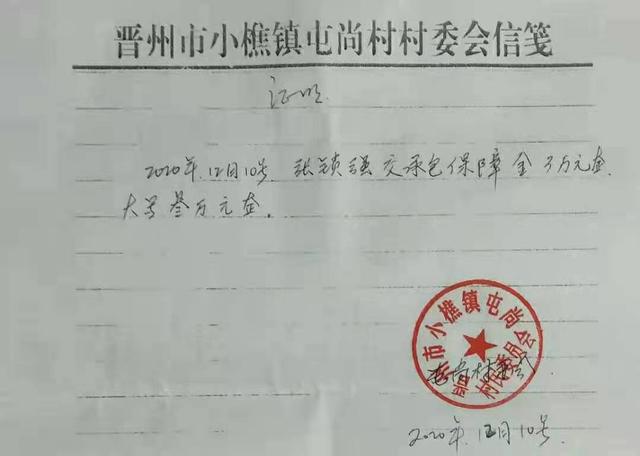 晋州市小樵镇屯尚村村委会信笺
证明
2020年12月10号 张锁强交承包保障金3万元整.
大写叁万元整.
晋州市小樵镇屯尚村村民委员会
屯尚村委会
2020年12月10号